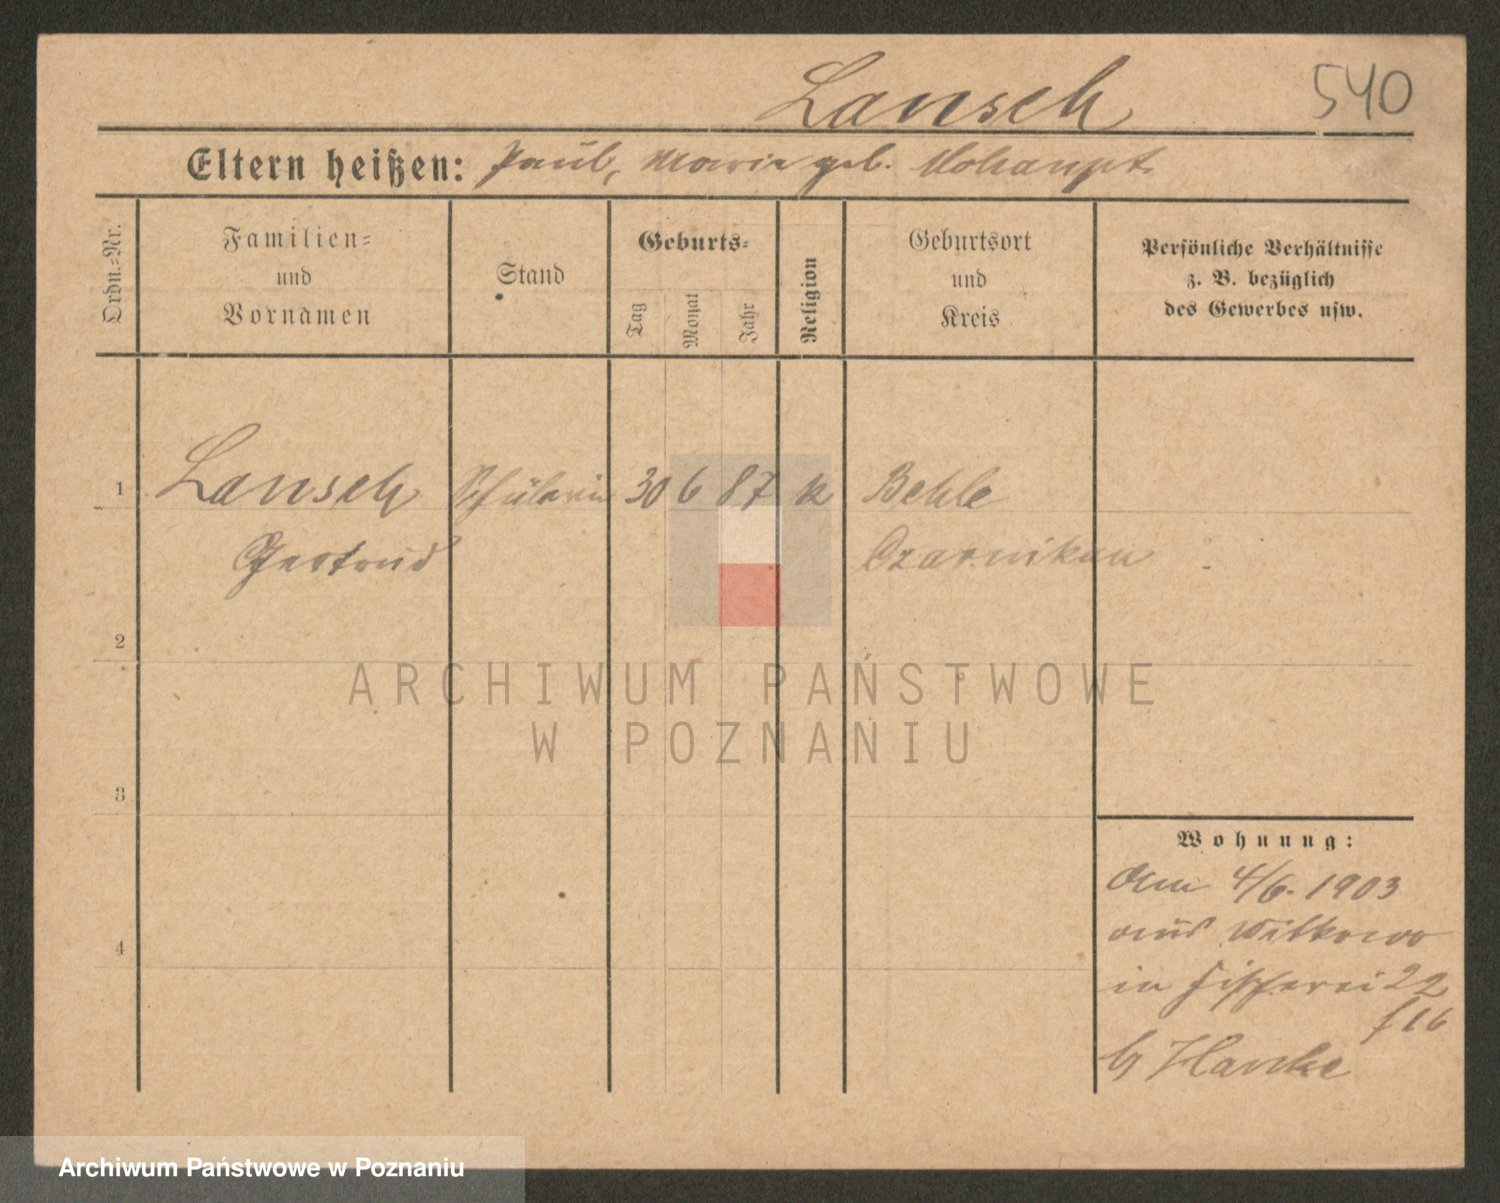 Lansch
540
Eltern heißen: Paul, Marie geb. Mohaupt.
Ordn.-Nr.
Familien-
und
Vornamen
Stand
Geburts-
Tag
Monat
Jahr
Religion
Geburtsort
und
Kreis
Persönliche Verhältnisse
z. B. bezüglich
des Gewerbes usw.
1 Lansch Schülerin 30 6 87 k Behle
Gertrud Czarnikau
2
ARCHIWUM PAŃSTWOWE
W POZNANIU
3
Wohnung:
Am 4/6. 1903
aus Witkowo
4
in Fischerei 22
f 16
b/ Hanke
Archiwum Państwowe w Poznaniu